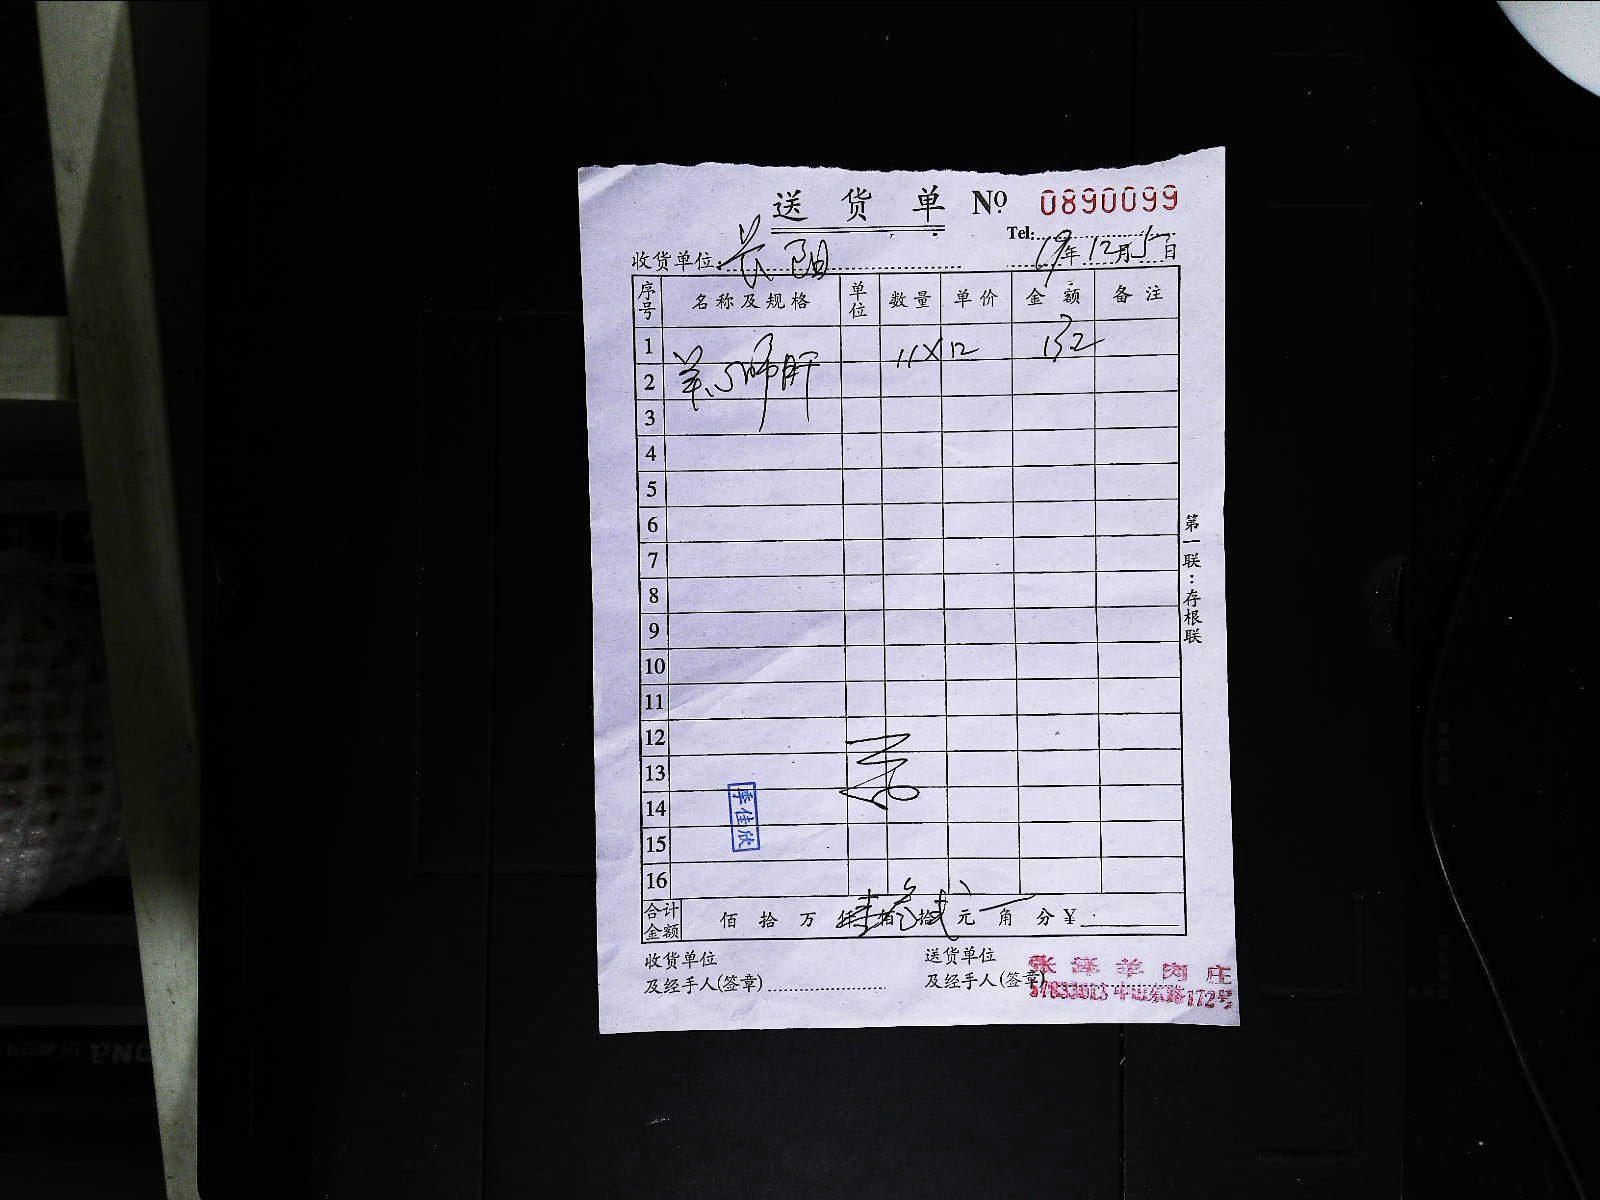 送货单 № 0890099
Tel:
收货单位: 长 19年12月5日
序号 名称及规格 单位 数量 单价 金额 备注
1 11×12 132
2 羊心肺肝
3
4
5
6
7
8
9
10
11
12
13
14
15
16
李佳欣
合计金额 佰拾万仟壹佰叁拾贰元 角 分 ¥
收货单位 送货单位
及经手人(签章) 及经手人(签章)
张泽羊肉庄
172号
第一联:存根联